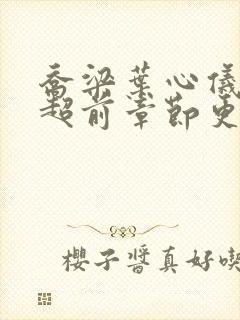 乔梁叶心仪
超前章节更
樱子酱真好喫